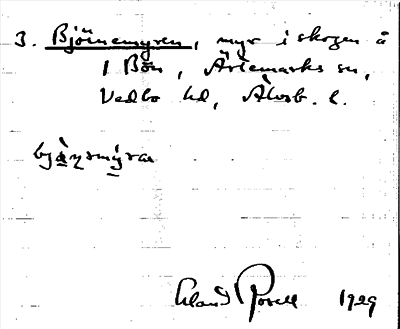 3. Björnemyren, myr i skogen å
1 Bön, Ärtemarks sn,
Vedbo hd, Älvsb. l.
Erland Rosell 1929